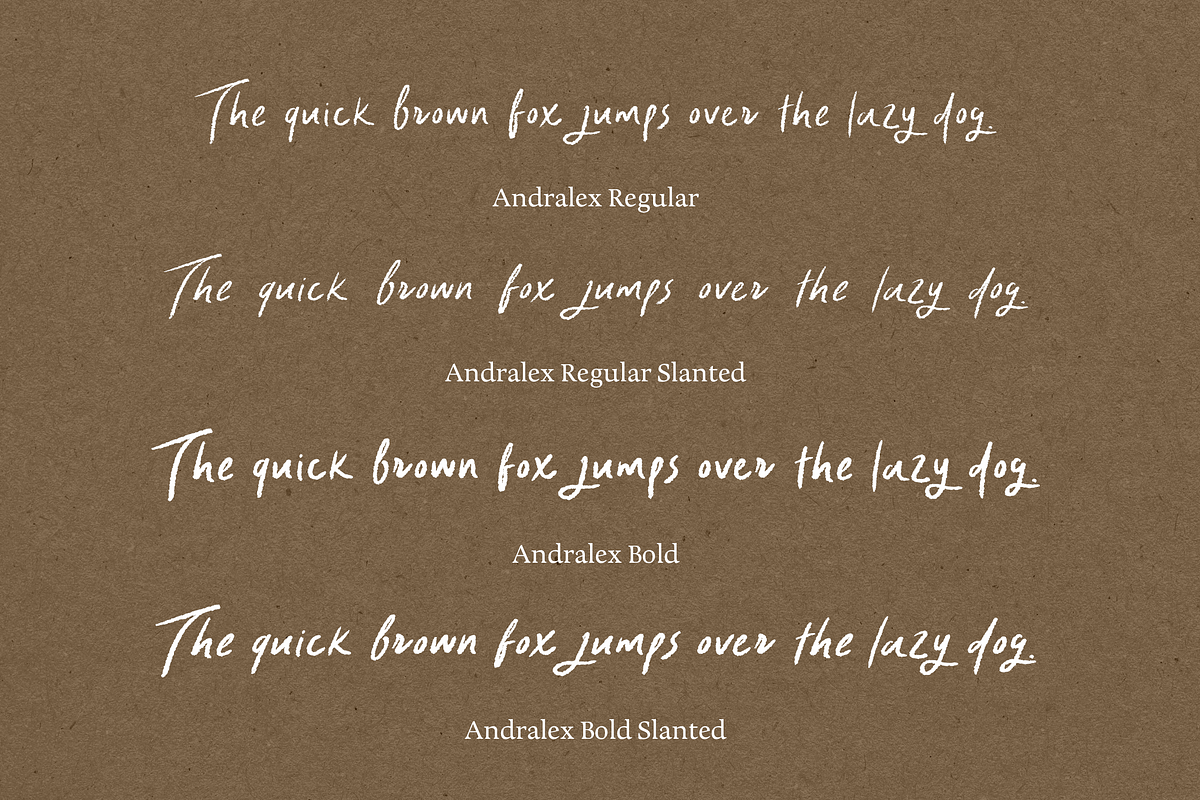 The quick brown fox jumps over the lazy dog.
Andralex Regular
The quick brown fox jumps over the lazy dog.
Andralex Regular Slanted
The quick brown fox jumps over the lazy dog.
Andralex Bold
The quick brown fox jumps over the lazy dog.
Andralex Bold Slanted